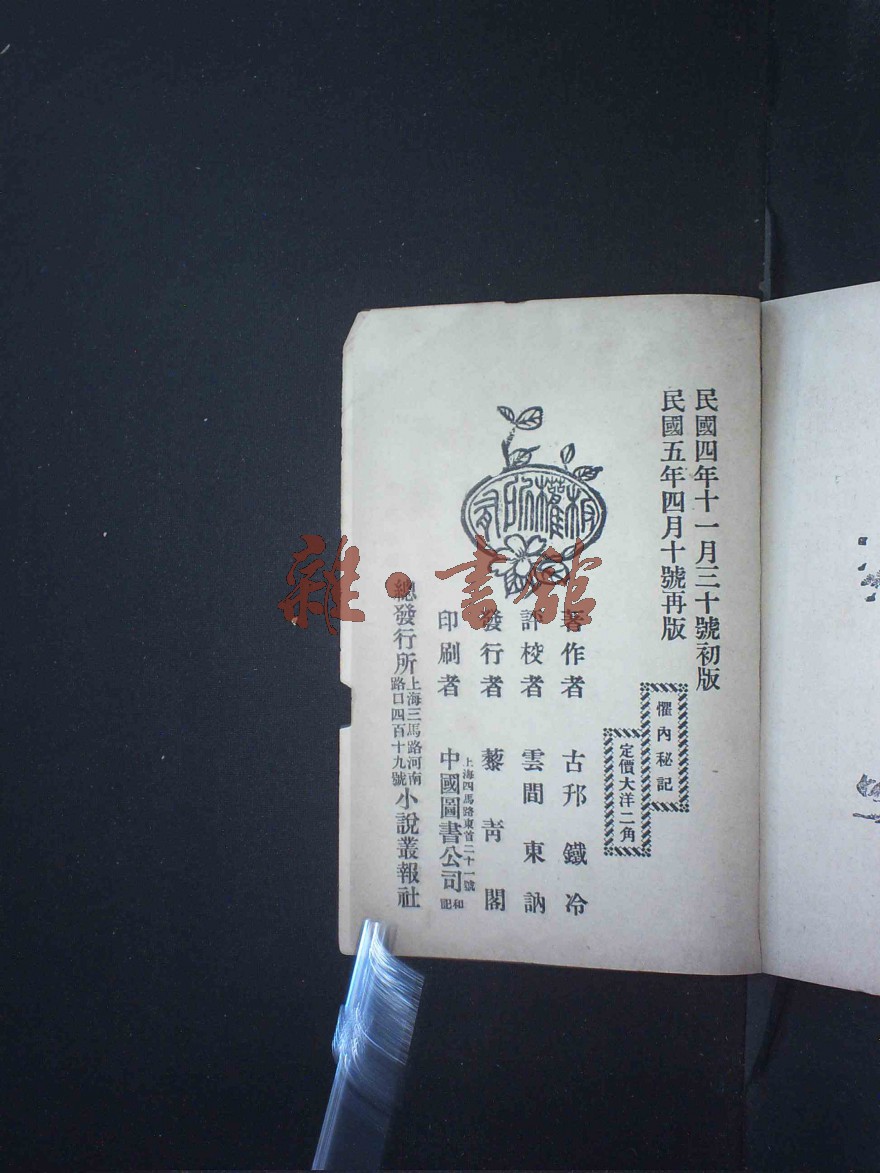 民國四年十一月三十號初版
民國五年四月十號再版
懼內秘記
定價大洋二角
版權所有
著作者 古邗鐵冷
評校者 雲間東訥
發行者 藜青閣
印刷者 上海四馬路東首二十一號 中國圖書公司和記
總發行所 上海三馬路河南路口四百十九號 小說叢報社
雜·書館